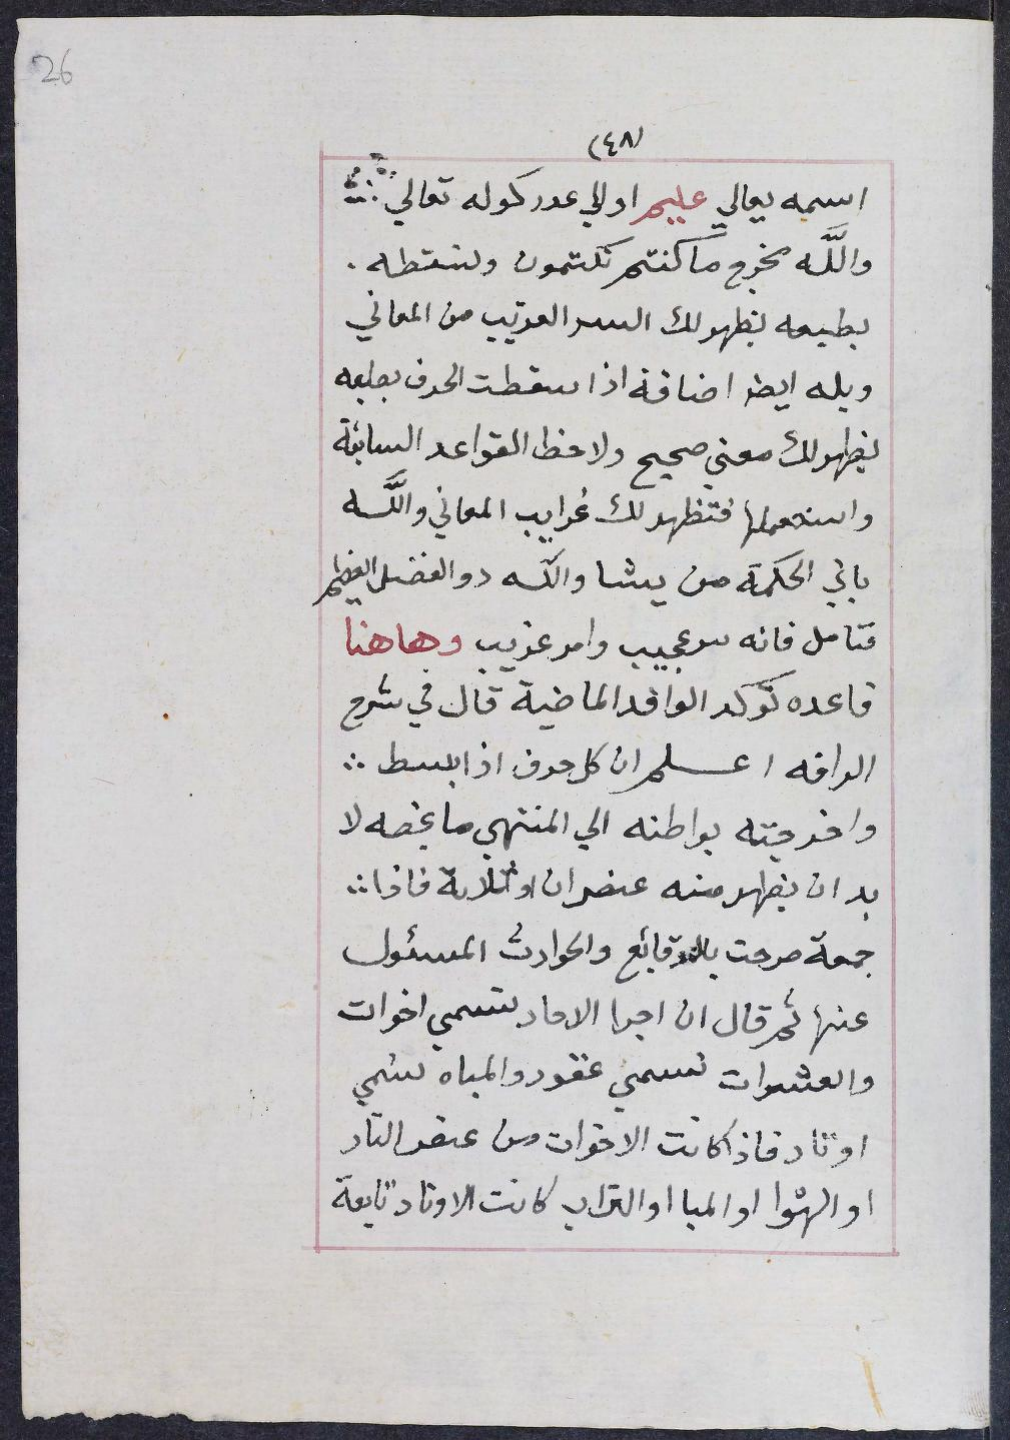 26
(٤٨)
اسمه تعالي عليم او الي عدد كوله تعالي
والله مخرج ما كنتم تكتمون وتسقطه .
بطبعه يظهر لك السر الغريب من المعاني
ويله ايضا اضافة اذا سقطت الحرف بطبعه
يظهر لك معني صحيح ولاحظ القواعد السابقة
واستعملها فتظهر لك غرايب المعاني والله
ياتي الحكمة من يشا والله دو الفضل العظيم
فتامل فانه سر عجيب وامر غريب وهاهنا
قاعده توكد القواعد الماضية قال في شرح
الرافه اعلم ان كل حرف اذا بسط
واخرجته بواطنه الي المنتهي ما يخصه لا
بد ان يظهر منه عنصران او ثلاثة فاذا
جمعة صرحت بالوقايع والحوادث المسئول
عنها ثم قال ان اجرا الاحاد تسمي اخوات
والعشرات تسمي عقود والمياه تسمي
اوتاد فاذا كانت الاخوات من عنصر النار
او الهوا او الميا او التراب كانت الاوتاد تابعة